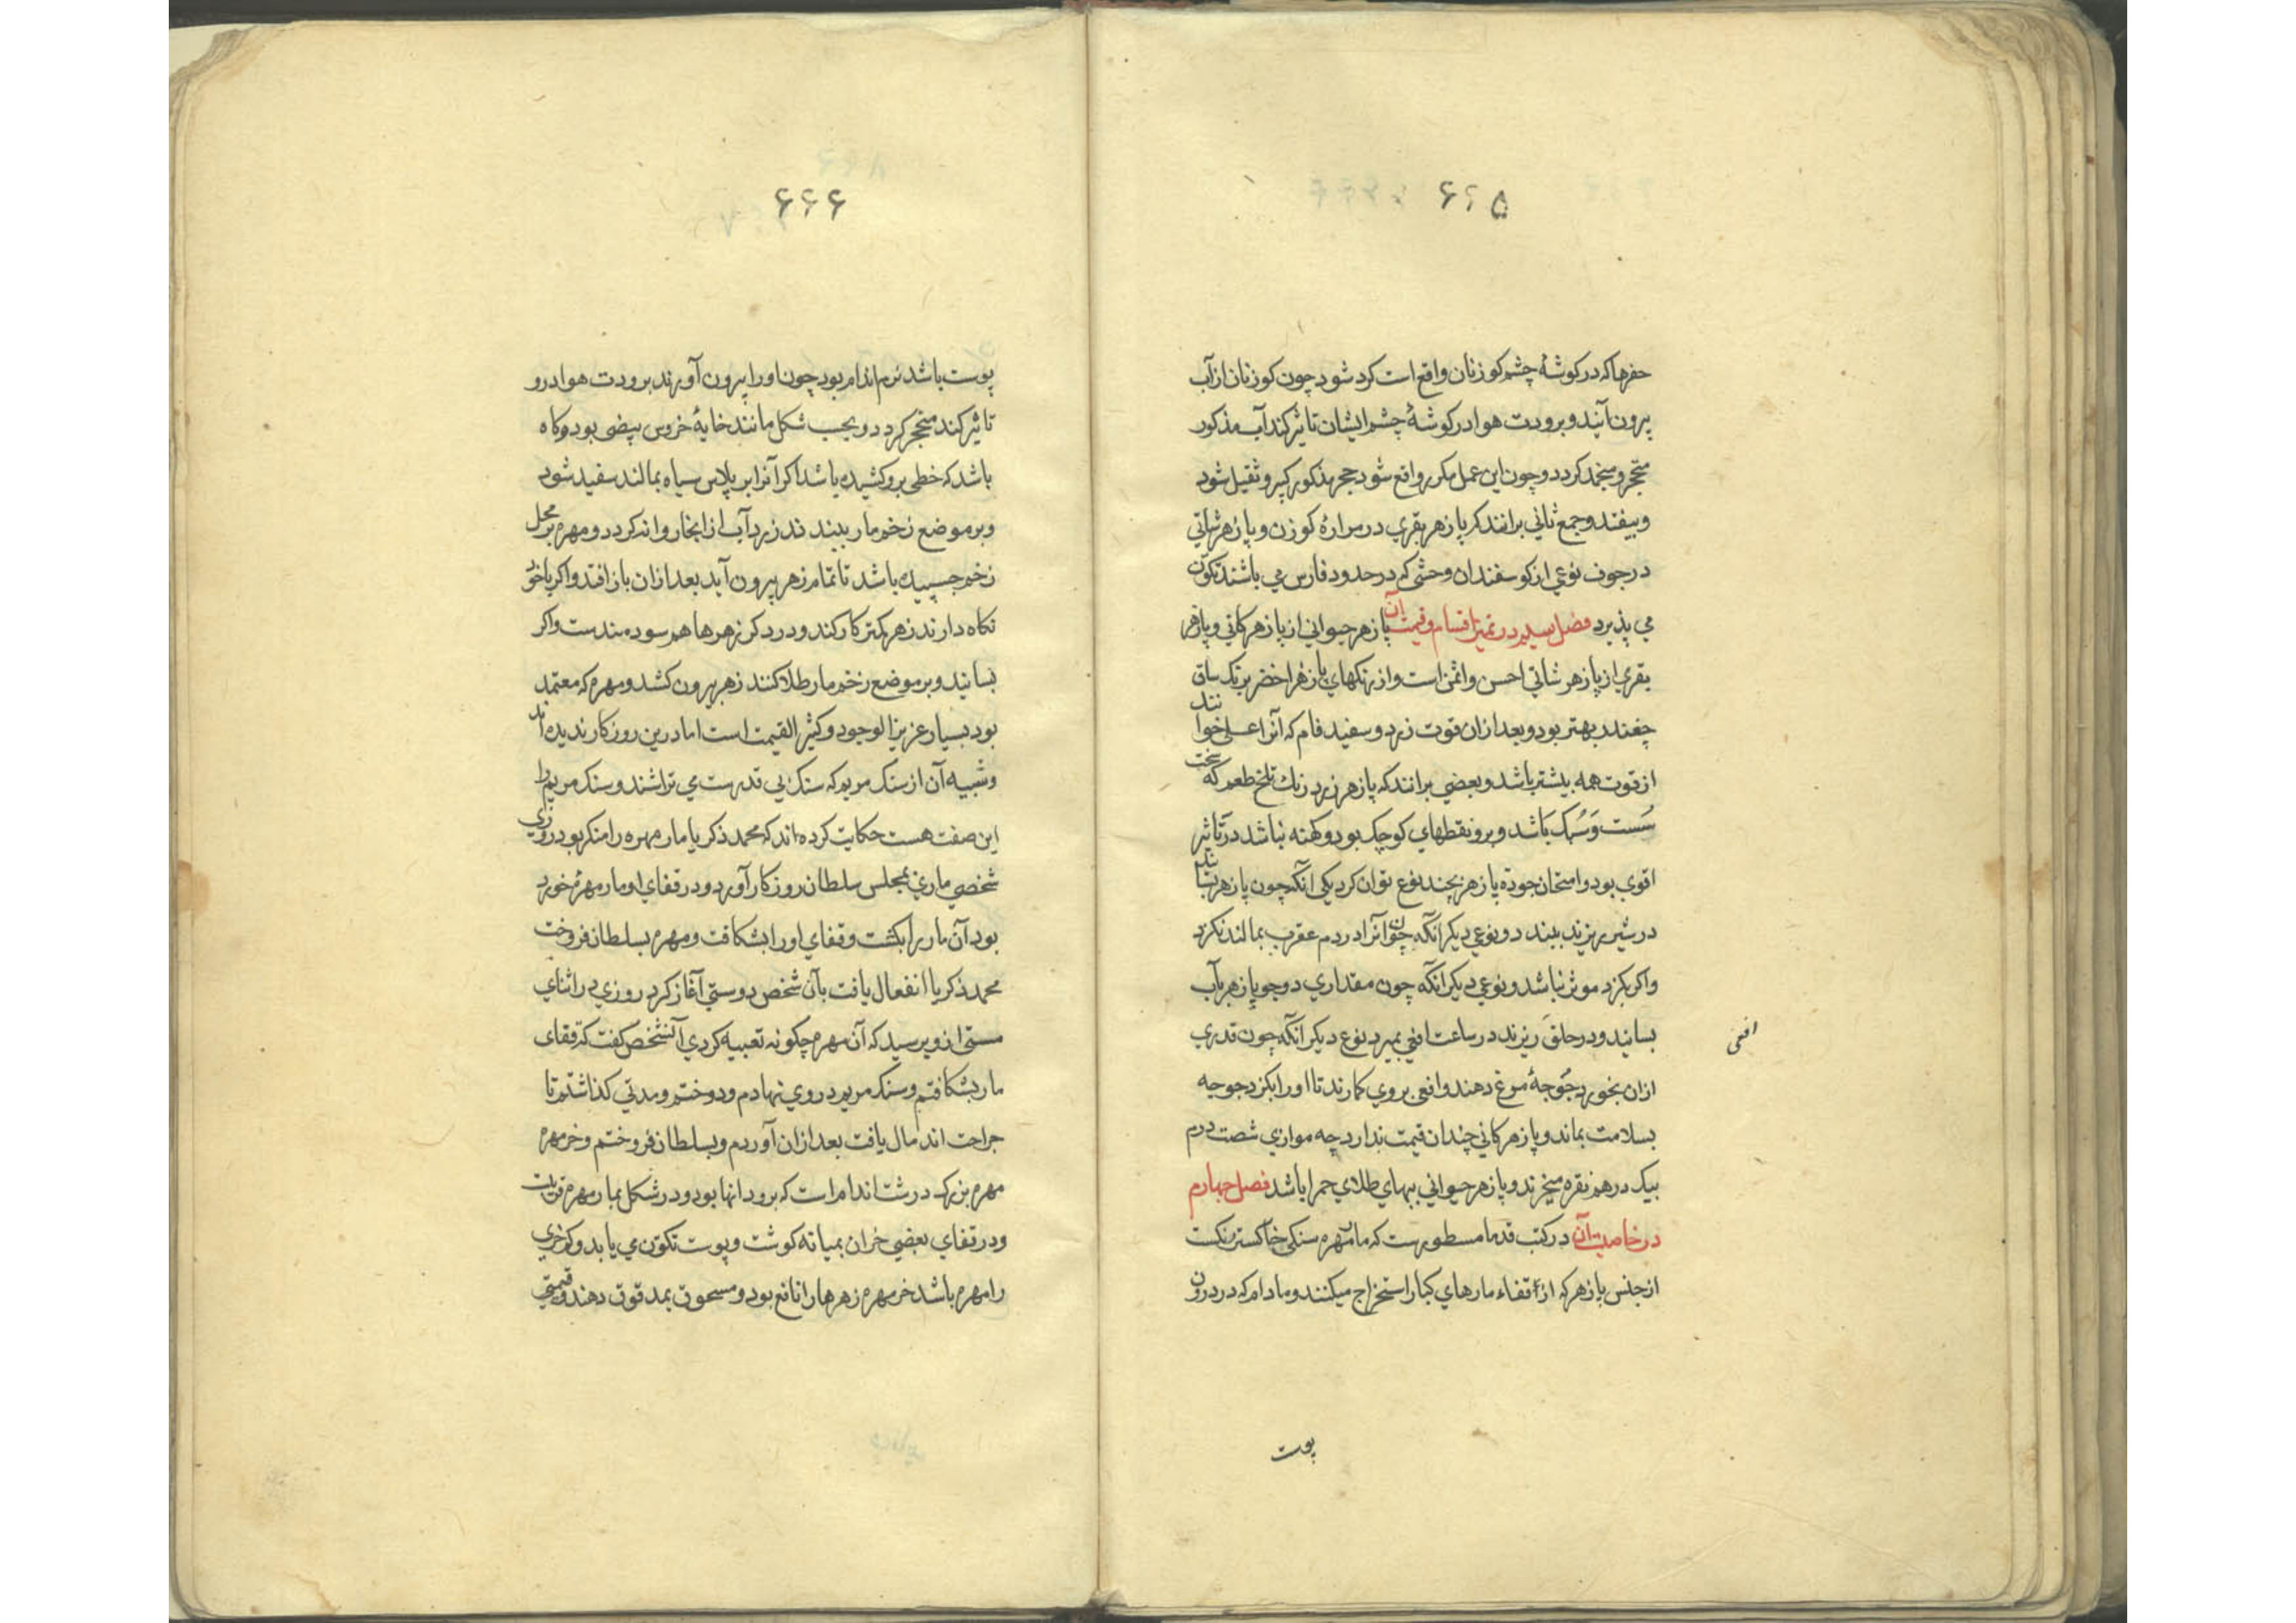 ۶۶۵
حفرها که در کوشهٔ چشم کوزنان واقع است کرد شود چون کوزنان از آب
بیرون آیند و برودت هوا در کوشهٔ چشم ایشان تاثیر کند آب مذکور
متحجر و منجمد کردد و چون این عمل مکرر واقع شود حجر مذکور کبیر و ثقیل شود
و بیفتد و جمع ثانی برانند که پازهر بقری در مرارهٔ کوزن و پازهر شاتی
در جوف نوعی از کوسفندان وحشی که در حدود فارس می باشند تکوّن
می پذیرد فصل سیلم در تمیز اقسام و قیمت آن پازهر حیوانی از پازهر کانی و پازهر
بقری از پازهر شاتی احسن و اثمن است و از رنکهای پازهر اخضر برنک ساق
چغندر بهتر بود و بعد از ان قوت زرد و سفید فام که آنرا اعلی خوانند
از قوت همه بیشتر باشد و بعضی برانند که پازهر زرد رنك تلخ طعم که سخت
سُست وَ سُبک بَاشد و برو نقطهای کوچک بود و کهنه نباشد در تاثیر
اقوی بود و امتحان جودة پازهر بچند نوع توان کرد یکی انکه چون پازهر بسایند
در شیر ریزند ببندد و نوعی دیکر آنکه چون آنرا در دم عقرب بمالند نکزد
و اکر بکزد موثر نباشد و نوعی دیکر انکه چون مقداری دو جو پازهر بآب
بسایند و در حلق ریزند در ساعت افعی بمیرد نوع دیکر انکه چون قدری
افعی
ازان بخورد جُوجهٔ مرغ دهند و افعی بروی کمارند تا اورا بکزد جوجه
بسلامت بماند و پازهر کانی چندان قیمت ندارد چه موازی شصت درم
بیک درهم نقره میخرند و پازهر حیوانی ببهای طلای حمرا باشد فصل چهارم
در خاصیت آن در کتب قدما مسطورست که مار مهره سنکی خاکستر رنکست
از جنس پازهر که از اقفاء مارهای کبار استخراج میکنند و مادام که در درون
پوست
۶۶۶
پوست باشد نرم اندام بود چون اورا بیرون آورند برودت هوا درو
تاثیر کند متحجر کردد و بحسب شکل مانند خایهٔ خروس بیضی بود و کاه
باشد که خطی برو کشیده باشد اکر آنرا بر پلاس سیاه بمالند سفید شود
و بر موضع زخم مار ببندند زرد آب از انجا روانه کردد و مهره بر محل
زخم چسبیده باشد تا تمام زهر بیرون آید بعد ازان باز افتد و اکر با خود
نکاه دارند زهر کمتر کار کند و در دکر زهرها هم سودمندست و اکر
بسایند و بر موضع زخم مار طلا کنند زهر بیرون کشد و مهره که معتمد
بود بسیار عزیز الوجود و کثیر القیمت است اما درین روزکار ندیده اند
و شبیه آن از سنک مریم که سنک بی قدرست می تراشند و سنک مریم را
این صفت هست حکایت کرده اند که محمد ذکریا مار مهره را منکر بود روزی
شخصی ماری بمجلس سلطان روزکار آورد و در قفای او مار مهرهٔ خورد
بود آن مار را بکشت و قفای اورا بشکافت و مهره بسلطان فروخت
محمد ذکریا انفعال یافت بآن شخص دوستی آغاز کرد روزی در اثنای
مستی ازو پرسید که آن مهره چکونه تعبیه کردی آنشخص کفت که قفای
مار بشکافتم و سنک مریم در وی نهادم و دوختم و مدتی کذاشتم تا
جراحت اندمال یافت بعد ازان آوردم و بسلطان فروختم و خر مهره
مهره بزرک درشت اندام است که برو دانها بود و در شکل بمار مهره قریبت
و در قفای بعضی خران بمیانه کوشت و پوست تکوّن می یابد و کورخری
را مهره باشد خر مهره زهرها را نافع بود و مسحوق بمدقوق دهند و قیمتی